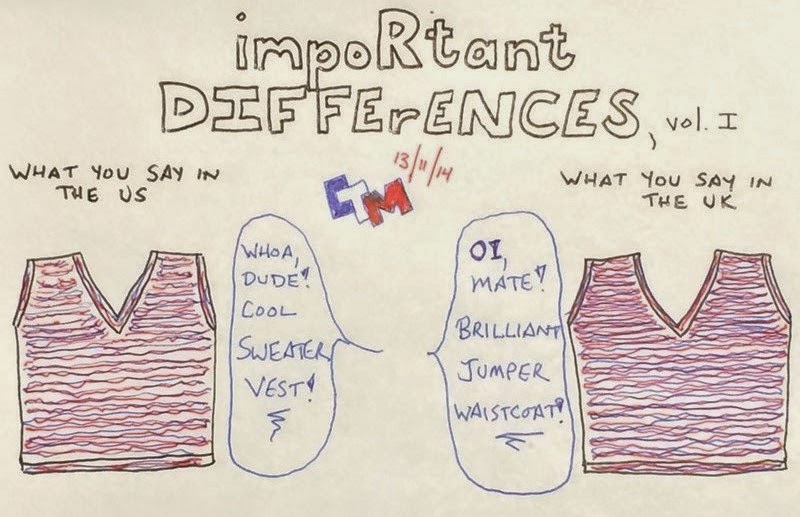 impoRtant
DIFFErENCES, vol. I
13/11/14
CTM
WHAT YOU SAY IN
THE US
WHAT YOU SAY IN
THE UK
WHOA,
DUDE!
COOL
SWEATER
VEST!
OI,
MATE!
BRILLIANT
JUMPER
WAISTCOAT!